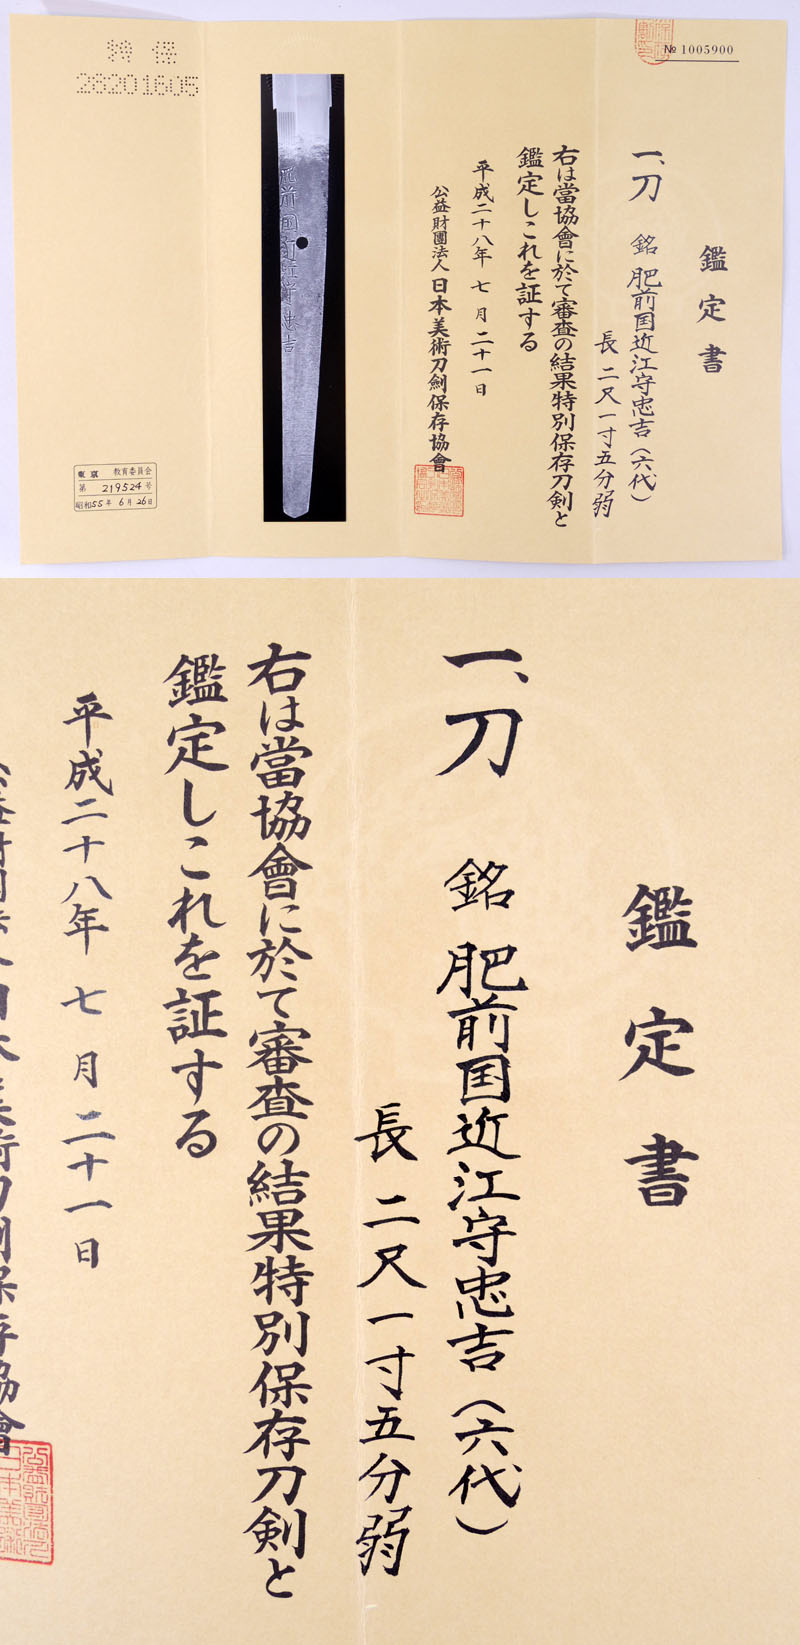 № 1005900
鑑定書
一、刀 銘 肥前国近江守忠吉(六代)
長 二尺一寸五分弱
右は當協會に於て審査の結果特別保存刀剣と
鑑定しこれを証する
平成二十八年 七 月 二十一日
公益財團法人 日本美術刀剣保存協會
肥前国近江守忠吉
特 保
28201605
東京 教育委員会
第 219524 号
昭和55年 6月 26日
鑑定書
一、刀 銘 肥前国近江守忠吉(六代)
長 二尺一寸五分弱
右は當協會に於て審査の結果特別保存刀剣と
鑑定しこれを証する
平成二十八年 七 月 二十一日
公益財團法人 日本美術刀剣保存協會